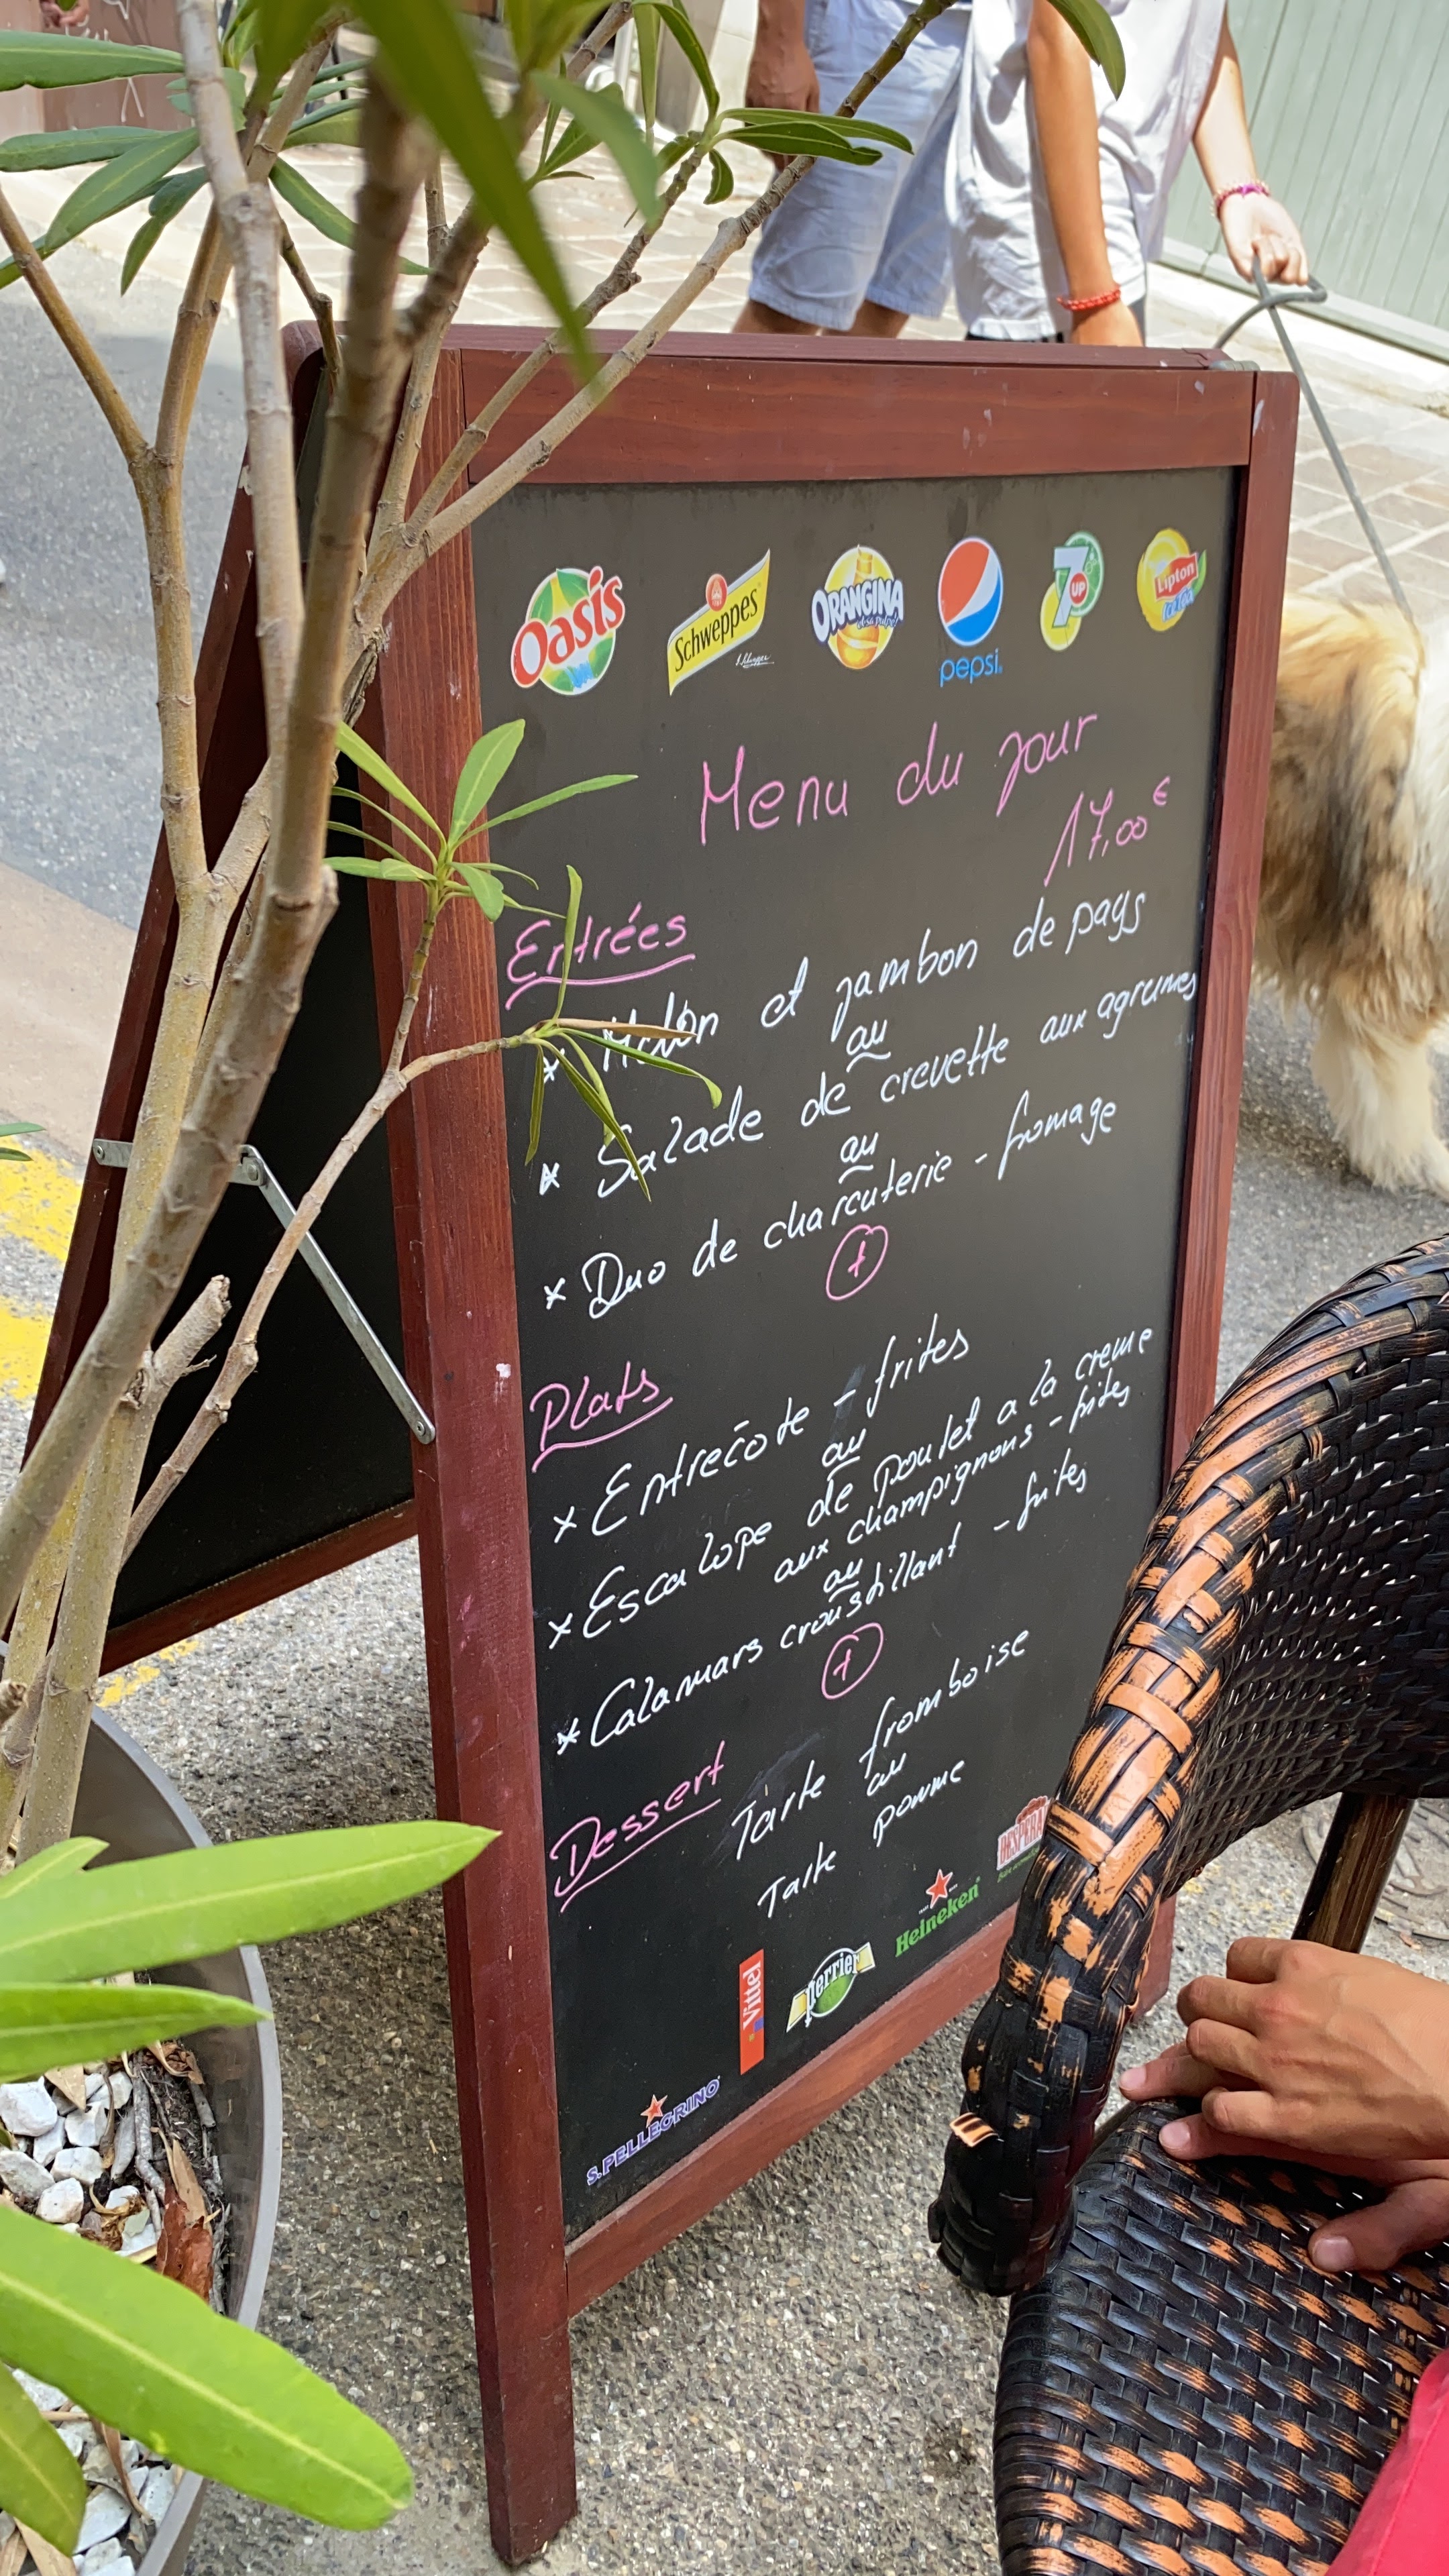 Oasis Schweppes ORANGINA pepsi 7UP Lipton Ice Tea
Menu du jour
17,00 €
Entrées
* Melon et jambon de pays
ou
* Salade de crevette aux agrumes
ou
* Duo de charcuterie - fromage
+
Plats
* Entrecôte - frites
ou
* Escalope de poulet a la creme
aux champignons - frites
ou
* Calamars croustillant - frites
+
Dessert
Tarte fromboise
ou
Tarte pomme
S.PELLEGRINO Vittel perrier Heineken